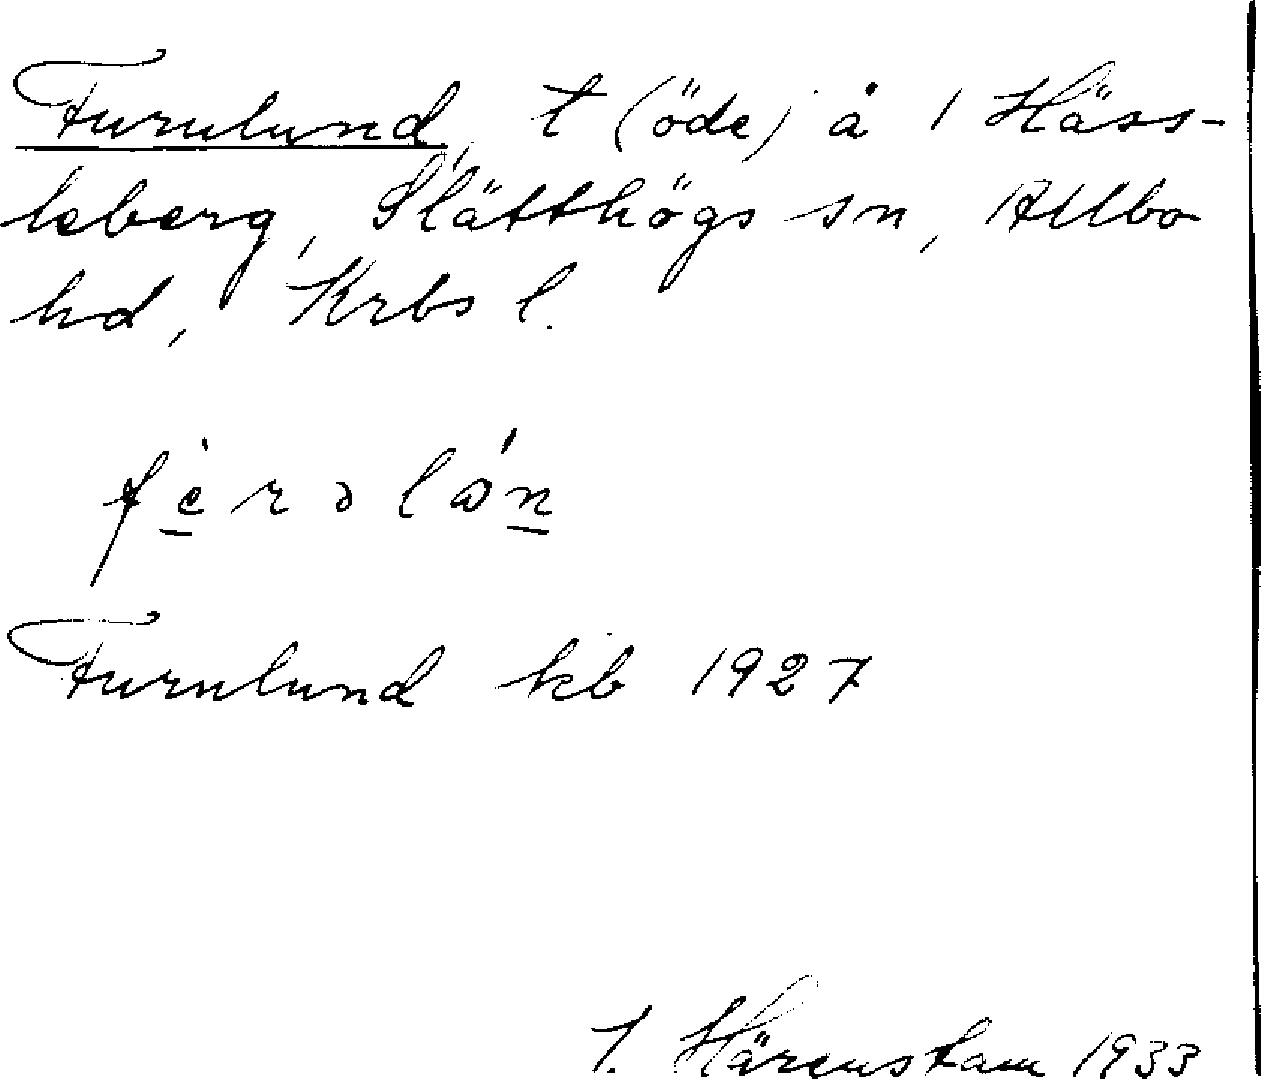 Furulund, t (öde) å 1 Häss-
leberg, Slätthögs sn, Allbo
hd, Krbs l.
Furulund kb 1927
J. Härenstam 1933